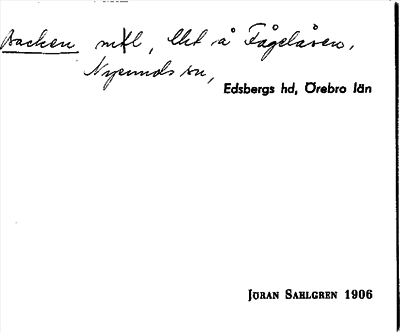 Backen mfl, lht å Fågelåsen,
Nysunds sn,
Edsbergs hd, Örebro län
Jöran Sahlgren 1906